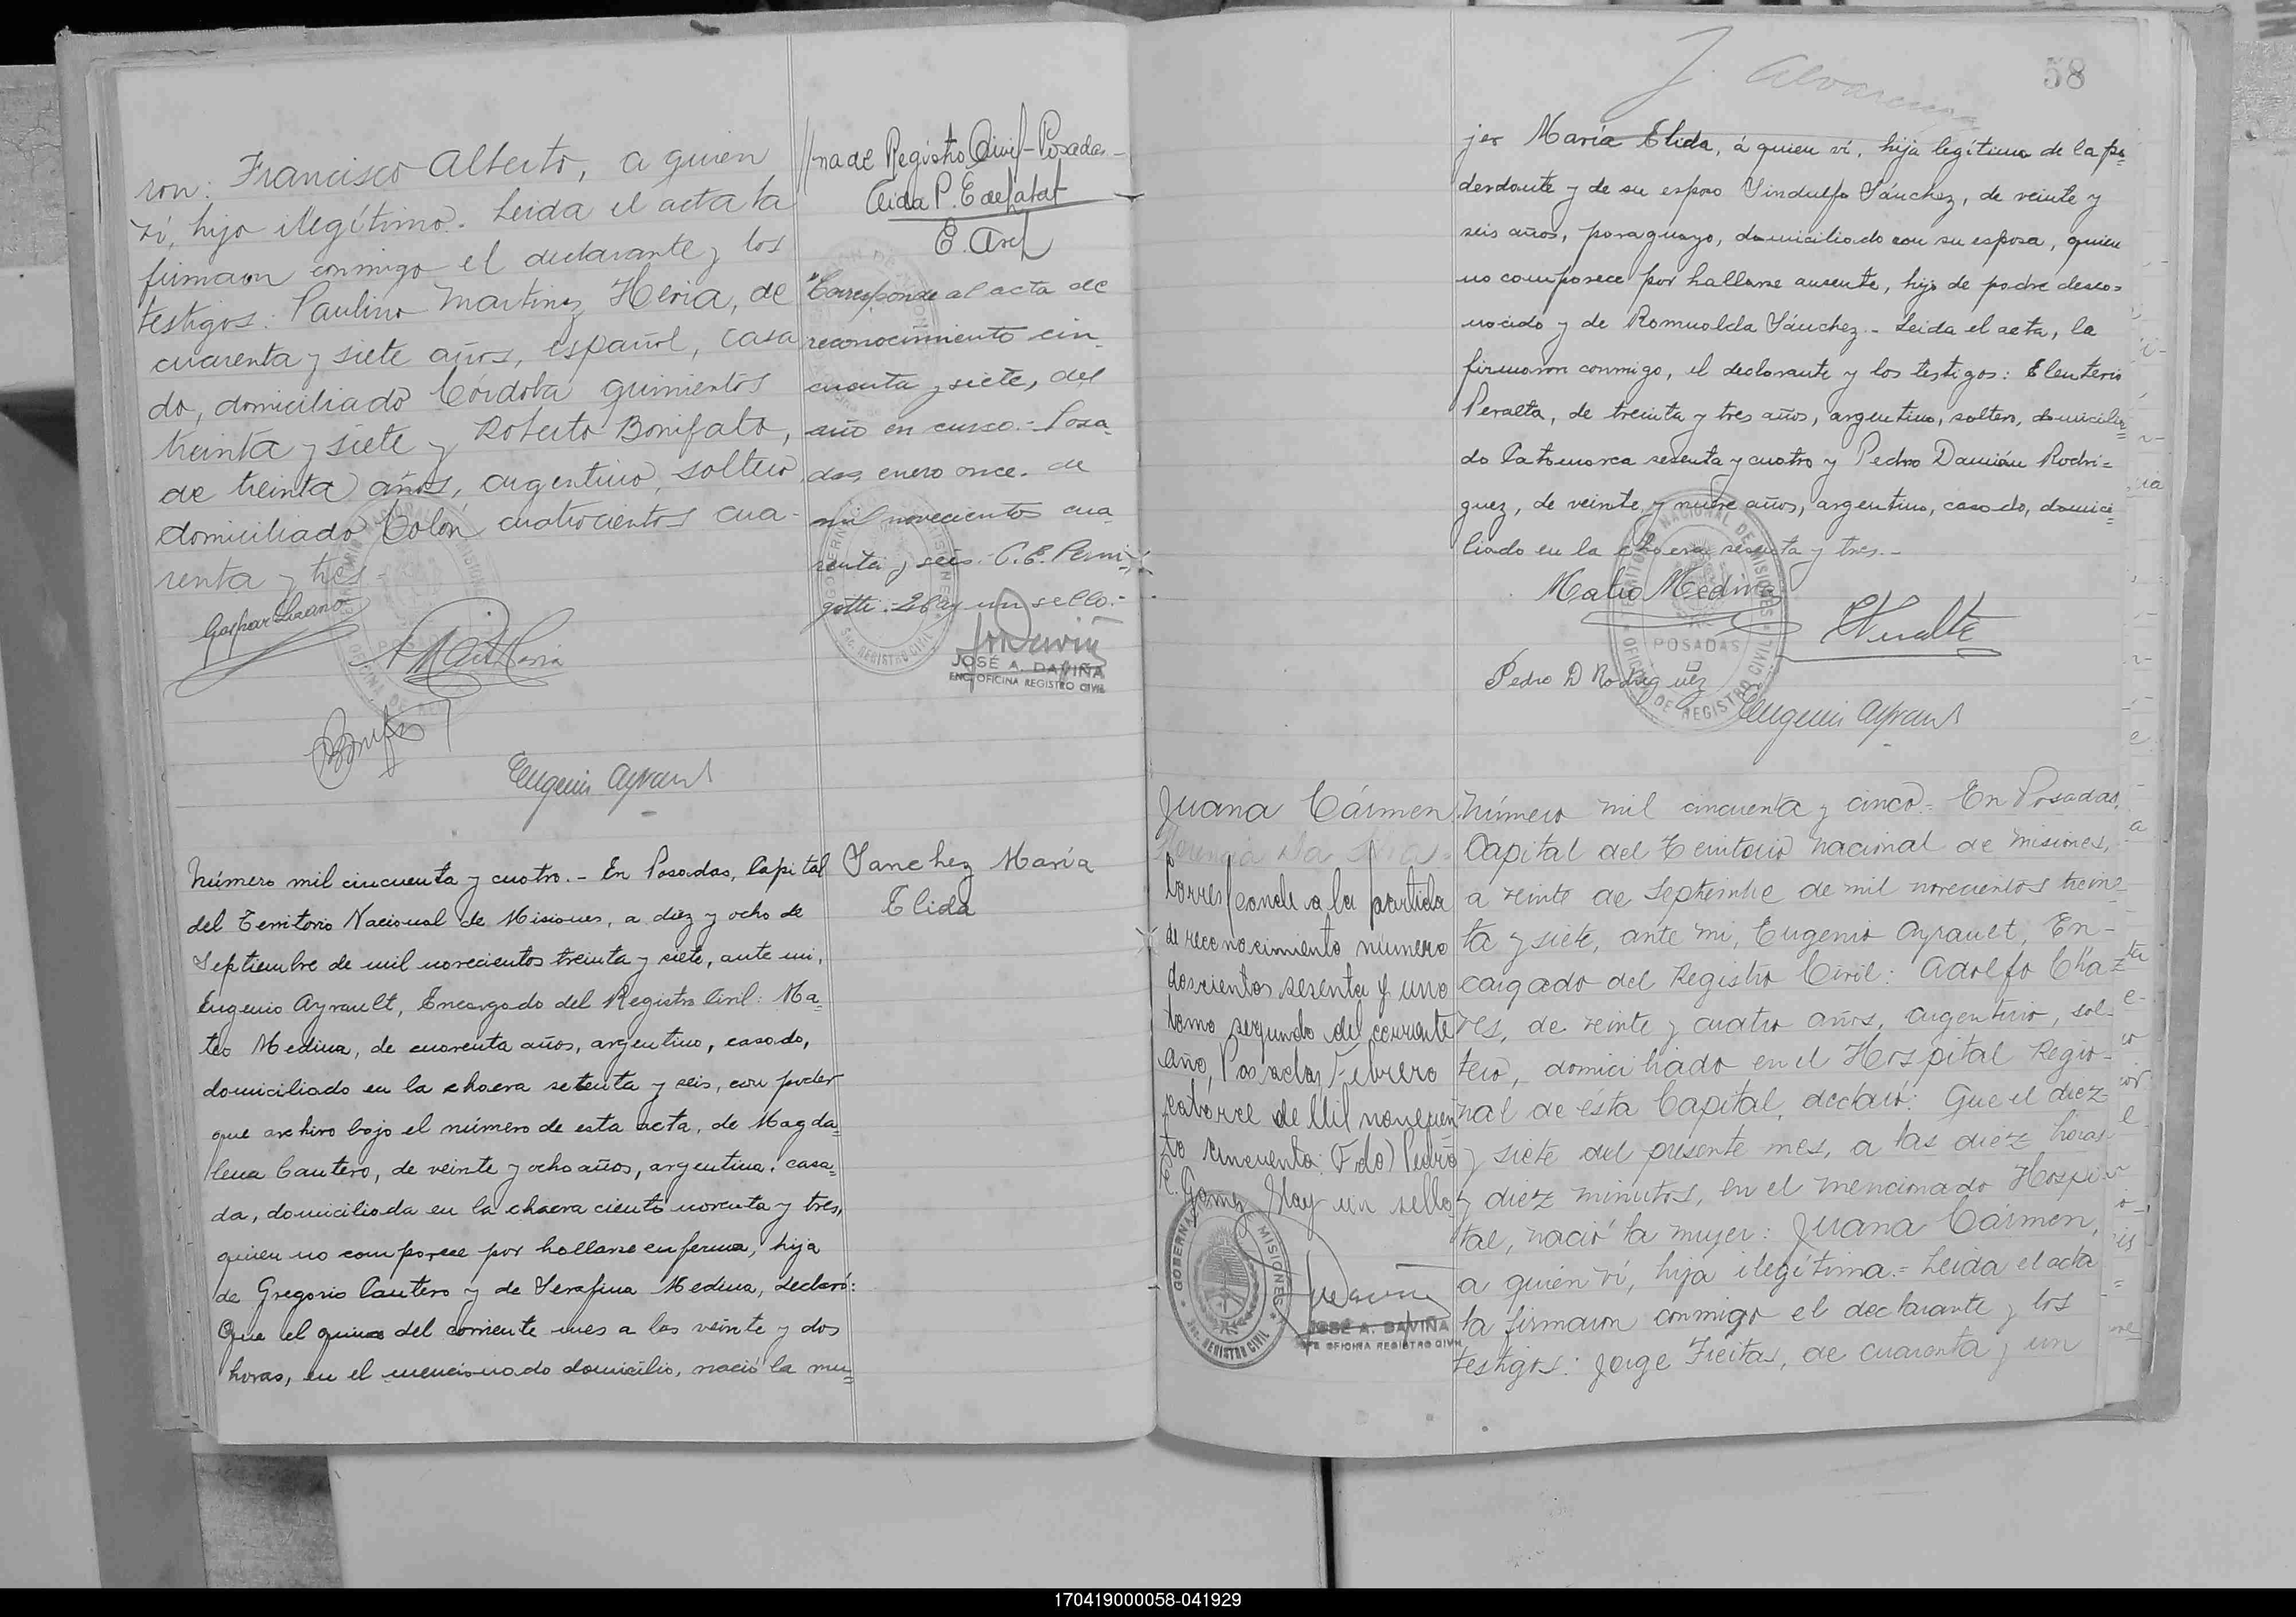 ron: Francisco Alberto, a quien
ví, hijo ilegítimo. Leida el acta la
firmaron conmigo el declarante y los
testigos: Paulino Martinez Heria, de
cuarenta y siete años, español, casa
do, domiciliado Córdoba quinientos
treinta y siete y Roberto Bonifato,
de treinta años, argentino, soltero,
domiciliado Colón cuatrocientos cua-
renta y tres=
Gaspar
Eugenio Ayrault
Número mil cincuenta y cuatro.- En Posadas, Capital
del Territorio Nacional de Misiones, a diez y ocho de
Septiembre de mil novecientos treinta y siete, ante mi,
Eugenio Ayrault, Encargado del Registro Civil: Ma=
teo Medina, de cuarenta años, argentino, casado,
domiciliado en la chacra setenta y seis, con poder
que archivo bajo el número de esta acta, de Magda=
lena Cantero, de veinte y ocho años, argentina, casa=
da, domiciliada en la chacra ciento noventa y tres,
quien no comparece por hallarse enferma, hija
de Gregorio Cantero y de Serafina Medina, declaró:
Que el quince del corriente mes a las veinte y dos
horas, en el mencionado domicilio, nació la mu=
//na de Registro Civil-Posadas-
"Corresponde al acta de
reconocimiento cin-
cuenta y siete, del
año en curso.- Posa-
das, enero once de
mil novecientos cua-
renta y seis. C.E. Perni-
gotti. Hay un sello.-
JOSÉ A. DAVIÑA
ENC. OFICINA REGISTRO CIVIL
Sanchez María
Elida
58
J. Alvarenga
jer María Elida, á quien ví, hija legítima de la po=
derdante y de su esposo Sindulfo Sánchez, de veinte y
seis años, paraguayo, domiciliado con su esposa, quien
no comparece por hallarse ausente, hijo de padre desco=
nocido y de Romualda Sánchez.- Leida el acta, la
firmaron conmigo, el declarante y los testigos: Eleuterio
Peralta, de treinta y tres años, argentino, soltero, domicilia=
do Catamarca sesenta y cuatro y Pedro Damián Rodri=
guez, de veinte y nueve años, argentino, casado, domici=
liado en la chacra sesenta y tres.-
Mateo Medina
Peralta
Pedro D Rodriguez
TERRITORIO NACIONAL DE MISIONES
POSADAS
OFICINA DE REGISTRO CIVIL
Eugenio Ayrault
Juana Cármen
Corresponde a la partida
de reconocimiento número
doscientos sesenta y uno
tomo segundo del corriente
año, Posadas, Febrero
catorce de Mil novecien
to cincuenta: (Fdo) Pedro
E. Gomez Hay un sello
GOBERNACION MISIONES
SEC. REGISTRO CIVIL
JOSÉ A. DAVIÑA
JEFE OFICINA REGISTRO CIVIL
Número mil cincuenta y cinco= En Posadas,
Capital del Territorio Nacional de Misiones,
a veinte de Septiembre de mil novecientos trein=
ta y siete, ante mi, Eugenio Ayrault, En-
cargado del Registro Civil: Adolfo Cha=
ves, de veinte y cuatro años, argentino, sol-
tero, domiciliado en el Hospital Regio-
nal de ésta Capital, declaró: Que el diez
y siete del presente mes, a las diez horas
y diez minutos, en el mencionado Hospi-
tal, nació la mujer: Juana Cármen,
a quien ví, hija ilegítima.= Leida el acta
la firmaron conmigo el declarante y los
testigos: Jorge Freitas, de cuarenta y un
170419000058-041929